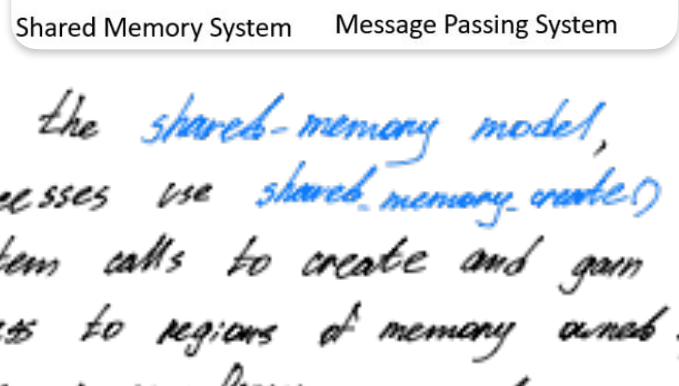 Shared Memory System Message Passing System
the shared-memory model,
esses use shared_memory_create()
tem calls to create and gain
ss to regions of memory owned